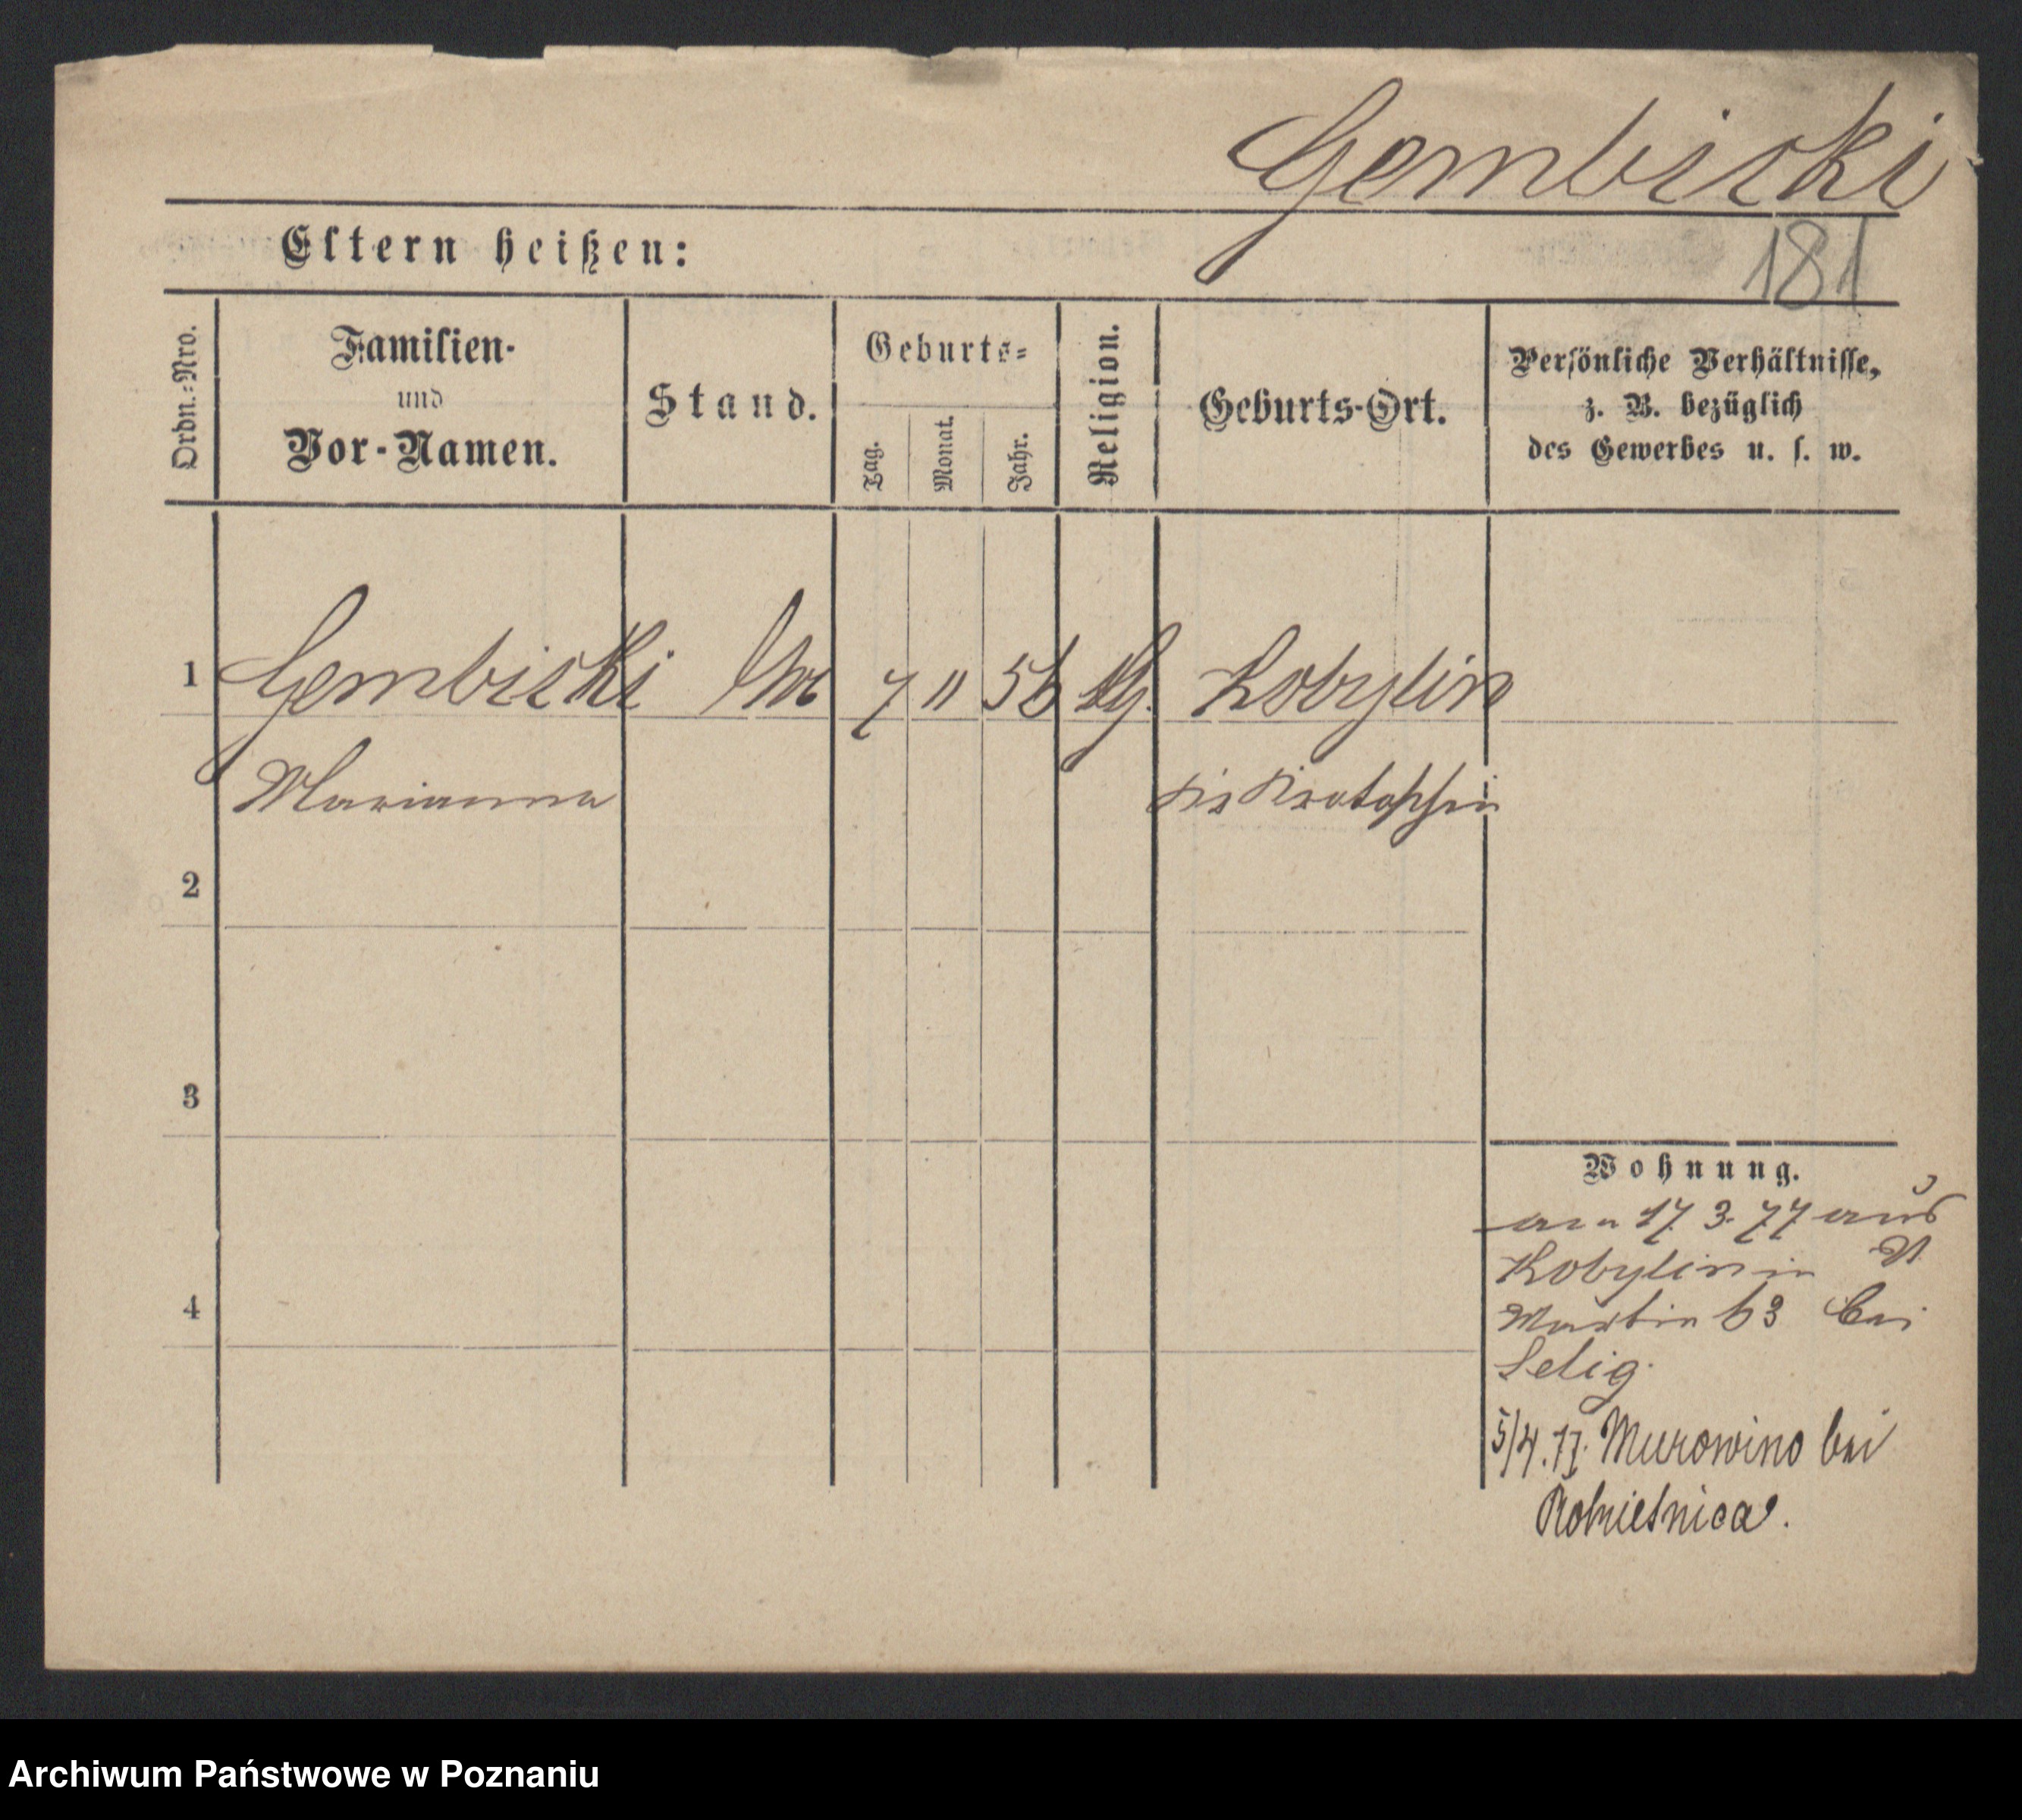 Gembicki
181
Eltern heißen:
Ordn.-Nro.
Familien-
und
Vor-Namen.
Stand.
Geburts-
Tag.
Monat.
Jahr.
Religion.
Geburts-Ort.
Persönliche Verhältnisse,
z. B. bezüglich
des Gewerbes u. s. w.
1 Gembicki 7 11 56 Kobylin
Marianna Krs Krotoschin
2
3
4
Wohnung.
am 17. 3. 77 aus
Kobylin in
Martin 63 bei
Selig.
5/4.77. Murowino bei
Rokietnica.
Archiwum Państwowe w Poznaniu